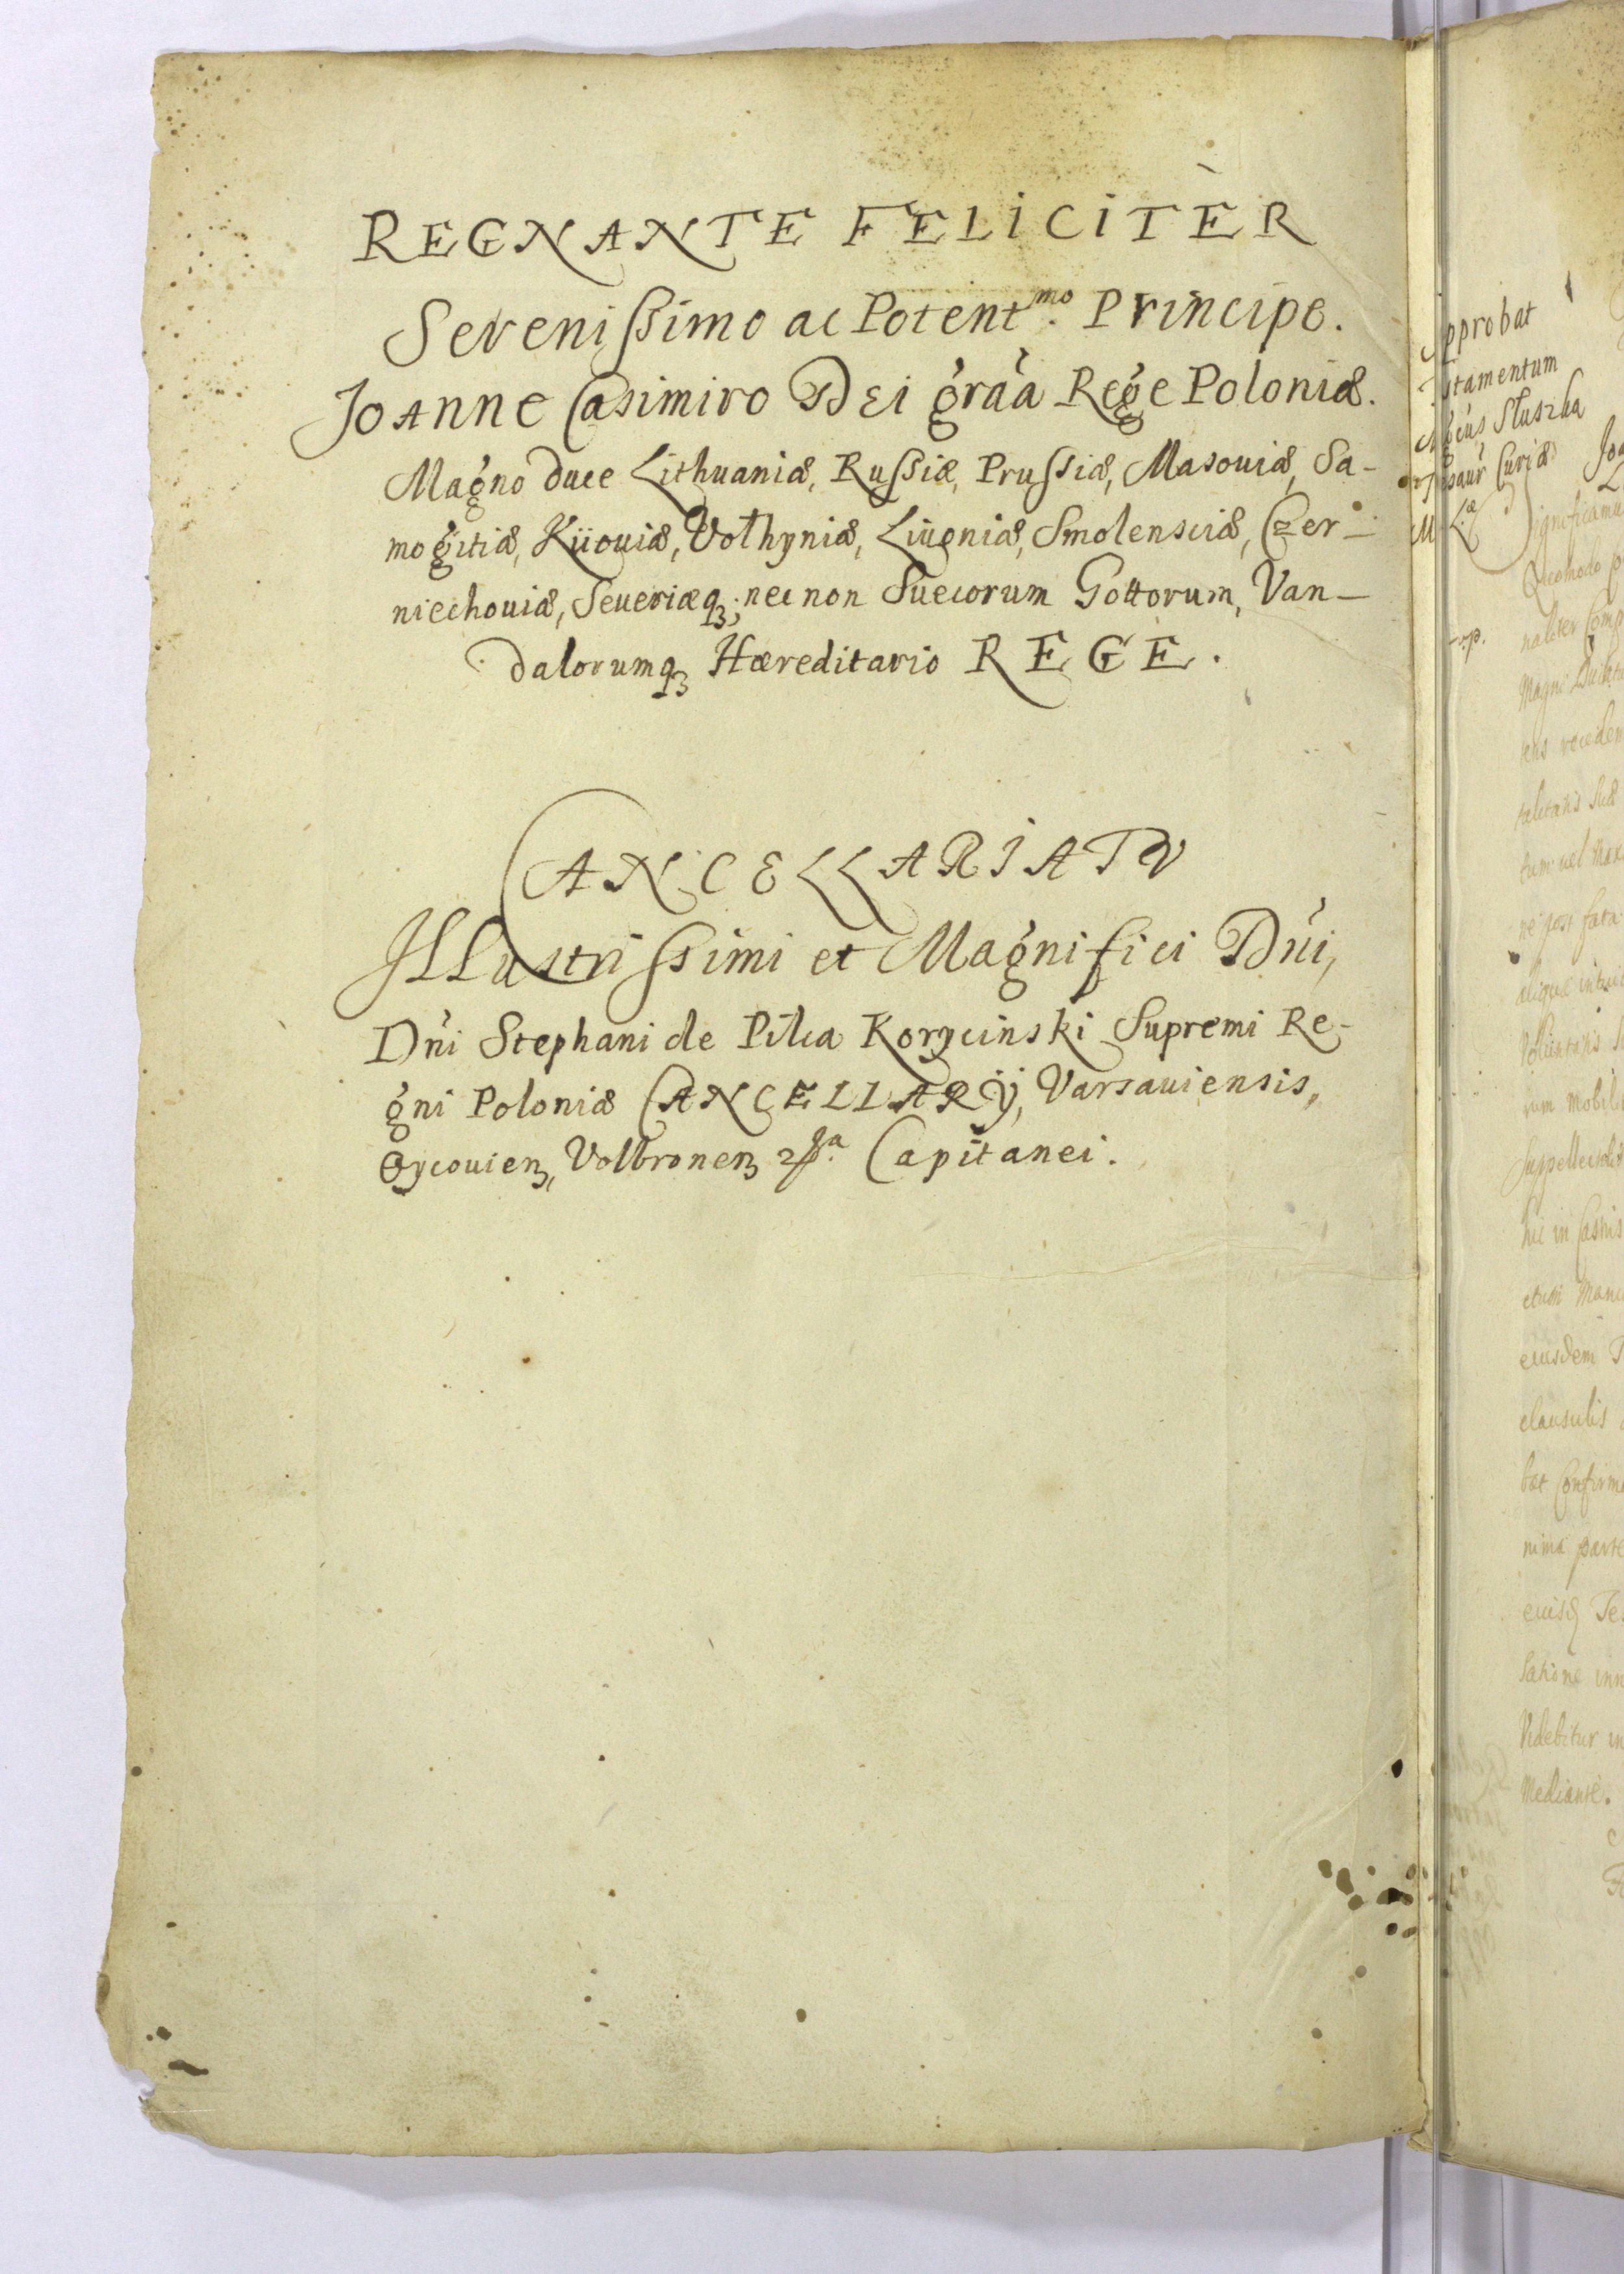 REGNANTE FELICITÈR
Serenissimo ac Potent^mo. Principe.
JOANNE Casimiro DEi gráa Rege Poloniæ.
Magno duce Lithuaniæ, Russiæ, Prussiæ, Masouiæ, Sa-
mogitiæ, Kijouiæ, Volhyniæ, Liuoniæ, Smolensciæ, Czer-
niechouiæ, Seueriæq; nec non Suecorum Gottorum, Van-
dalorumq Hæreditario REGE.
CANCELLARIATV
ILLustrissimi et Magnifici Dńi,
Dńi Stephani de Pilca Korycinski Supremi Re-
gni Poloniæ CANCELLARij, Varsauiensis,
Oycouien, Volbronen Capitanei.
pprobat
stamentum
Słuszka
saur Curiæ
Quomodo
naliter Comp
Magni Ducatu
tum uel
re post fata
rum mobili
suppellectili
hic in
etum Manu
eiusdem T
clausulis
bat Confirma
nima parte
eiusq Te
Videbitur in
Mediante.